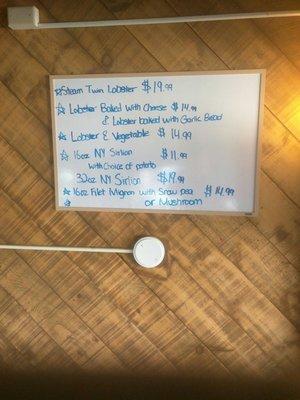 ☆Steam Twin Lobster $19.99
☆ Lobster Baked with Cheese $14.99
& Lobster baked with Garlic Bread
☆ Lobster & Vegetable $14.99
☆ 16oz NY Sirlion $11.99
with Choice of potato
32oz NY Sirlion $19.99
☆ 16oz Filet Mignon with Snow pea $14.99
or Mushroom